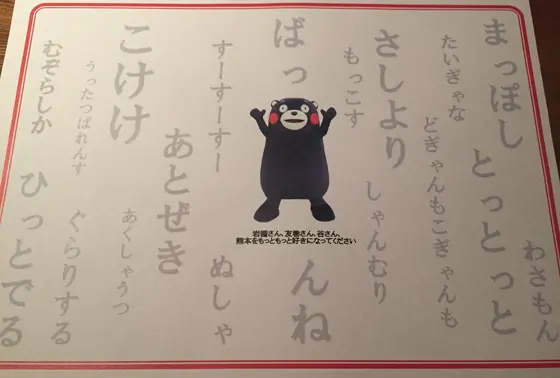 まっぽし
わさもん
とっとっと
たいぎゃな
どぎゃんもこぎゃんも
さしより
しゃんむり
もっこす
ばっ
んね
岩楯さん、友寄さん、谷さん、
熊本をもっともっと好きになってください
すーすーすー
ぬしゃ
あとぜき
こけけ
あくしゃうつ
うったつばれんす
ぐらりする
むぞらしか
ひっとでる